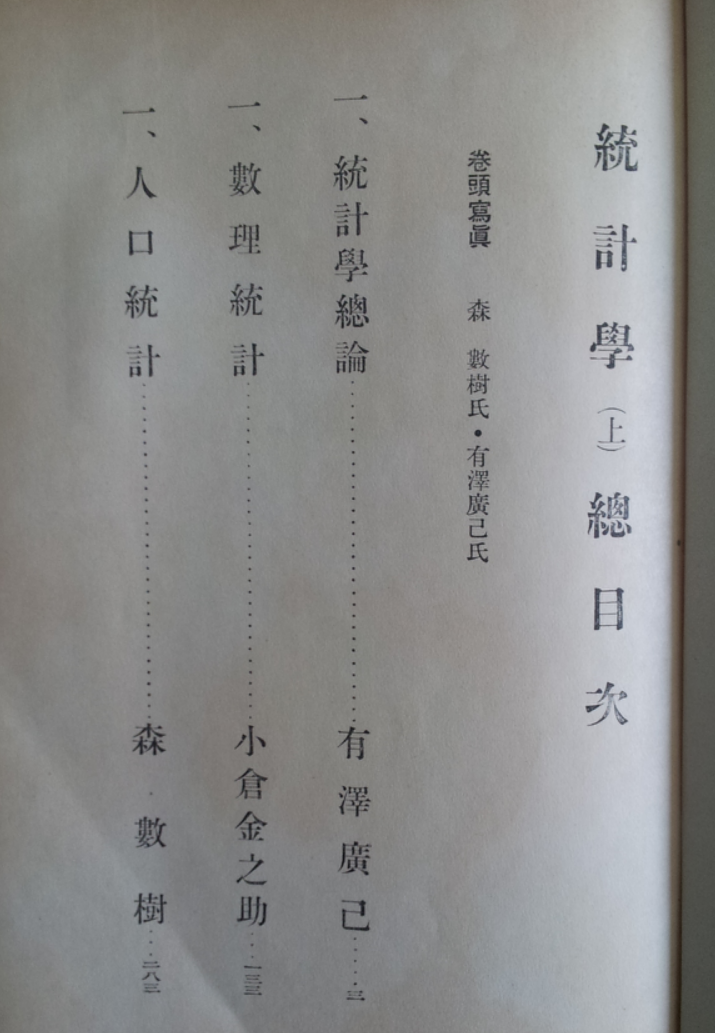 統計學(上)總目次
巻頭寫眞　森　數樹氏・有澤廣己氏
一、統計學總論……有澤廣己……三
一、數理統計……小倉金之助…一三三
一、人口統計……森　數樹…二八三